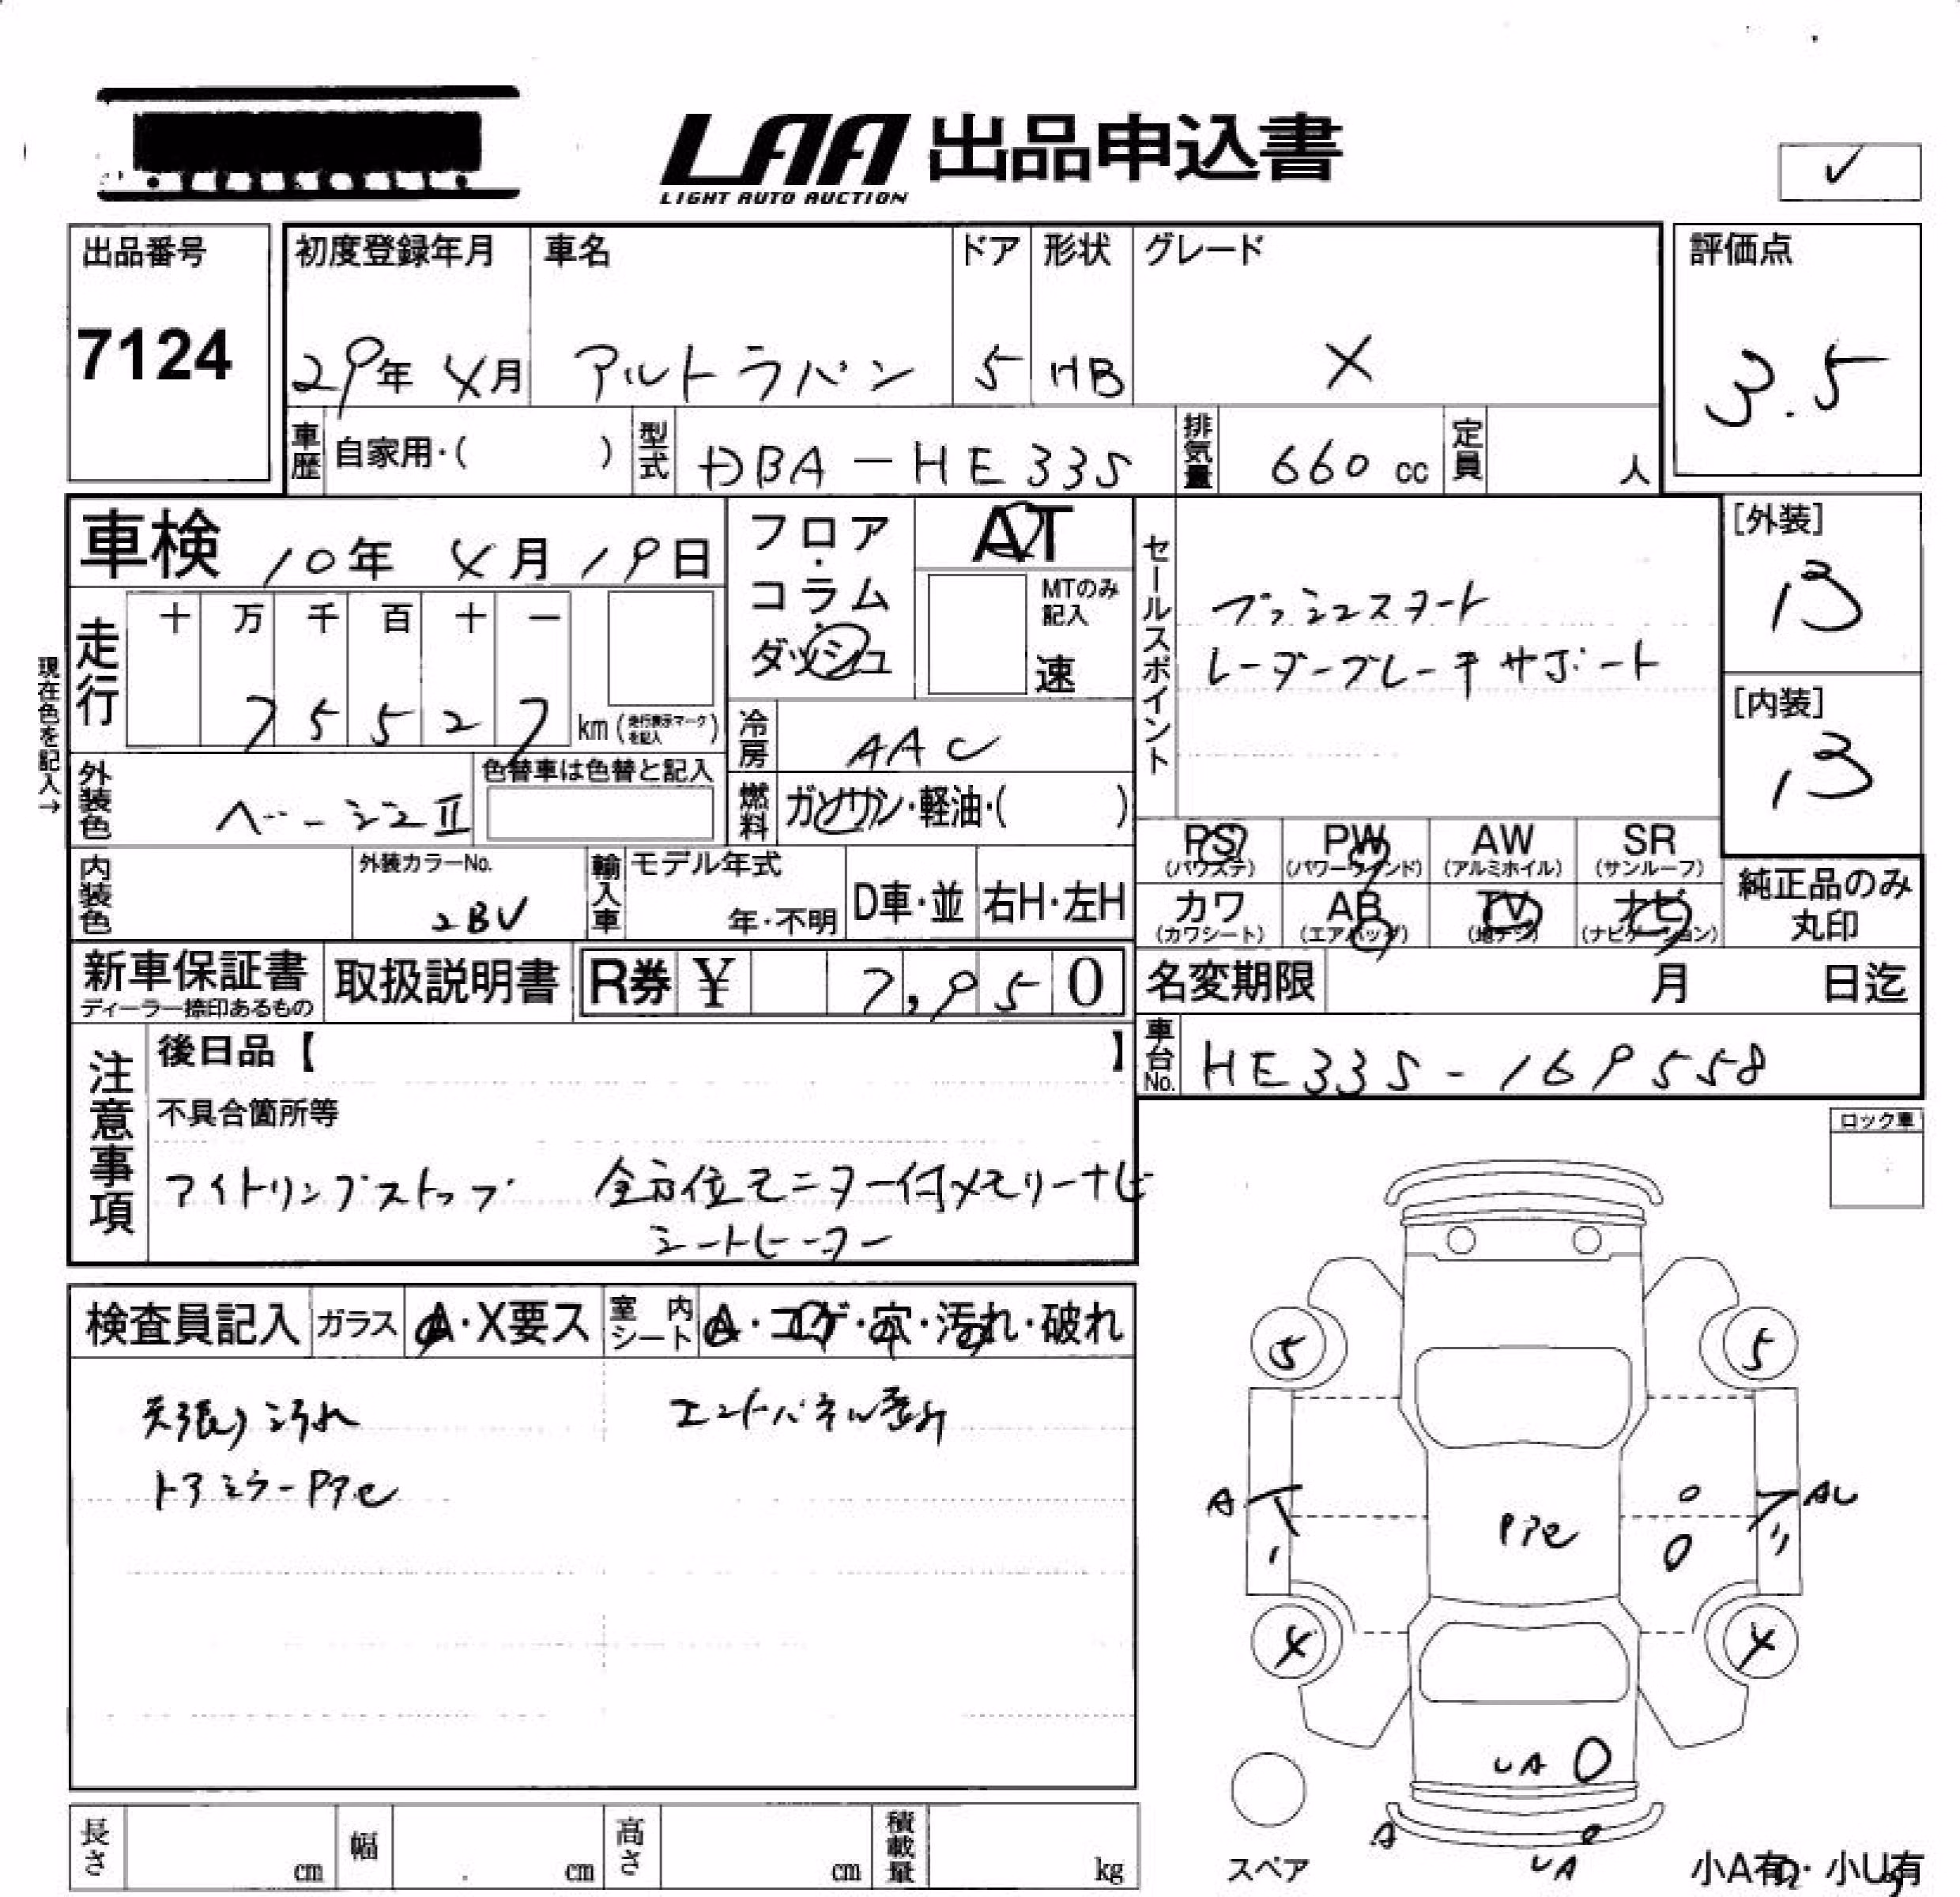 LAA 出品申込書
LIGHT AUTO AUCTION
✓
出品番号
7124
初度登録年月
29年 4月
車名
アルトラパン
ドア
5
形状
HB
グレード
X
評価点
3.5
車歴 自家用・( )
型式 DBA-HE33S
排気量 660 cc
定員 人
車検 10年 4月 19日
フロア・コラム・ダッシュ
AT
MTのみ記入
速
現在色を記入→
走行
十 万 千 百 十 一
7 5 5 2 7 km (走行表示マークを記入)
冷房 AAC
外装色 ベージュⅡ
色替車は色替と記入
燃料 ガソリン・軽油・( )
内装色
外装カラーNo.
2BV
輸入車
モデル年式
年・不明
D車・並
右H・左H
セールスポイント
プッシュスタート
レーダーブレーキサポート
[外装]
B
[内装]
B
PS (パワステ)
PW (パワーウインド)
AW (アルミホイル)
SR (サンルーフ)
カワ (カワシート)
AB (エアバッグ)
TV (地デジ)
ナビ (ナビゲーション)
純正品のみ丸印
新車保証書
ディーラー捺印あるもの
取扱説明書
R券 ¥ 7,950
名変期限 月 日迄
車台No. HE33S-169558
注意事項
後日品【 】
不具合箇所等
アイドリングストップ 全方位モニター付メモリーナビ
シートヒーター
ロック車
検査員記入
ガラス A・X要ス
室内シート A・コゲ・穴・汚れ・破れ
天張り汚れ エンドパネル歪み
ドアミラーPアセ
5
5
A
AU
Pアセ
4
4
UA
A
UA
スペア
小A有・小U有
長さ cm
幅 cm
高さ cm
積載量 kg